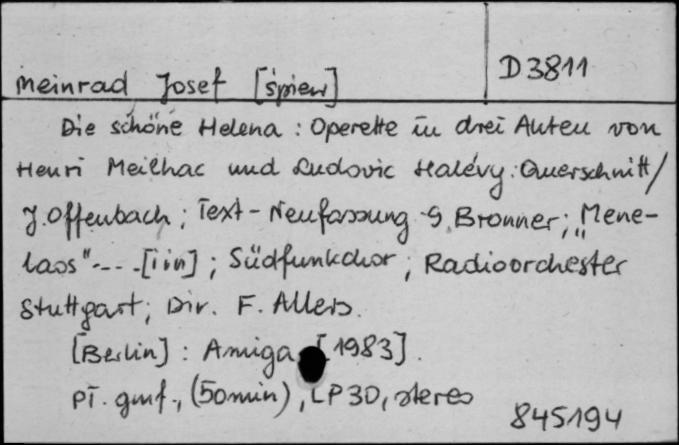 D3811
Meinrad Josef [śpiew]
Die schöne Helena : Operette in drei Akten von
Henri Meilhac und Ludovic Halévy : Querschnitt /
J. Offenbach ; Text - Neufassung G. Bronner ; "Mene-
laos" .... [i in] ; Südfunkchor ; Radioorchester
Stuttgart ; Dir. F. Allers.
[Berlin] : Amiga [1983].
Pł. gmf., (50min), LP30, stereo
845194